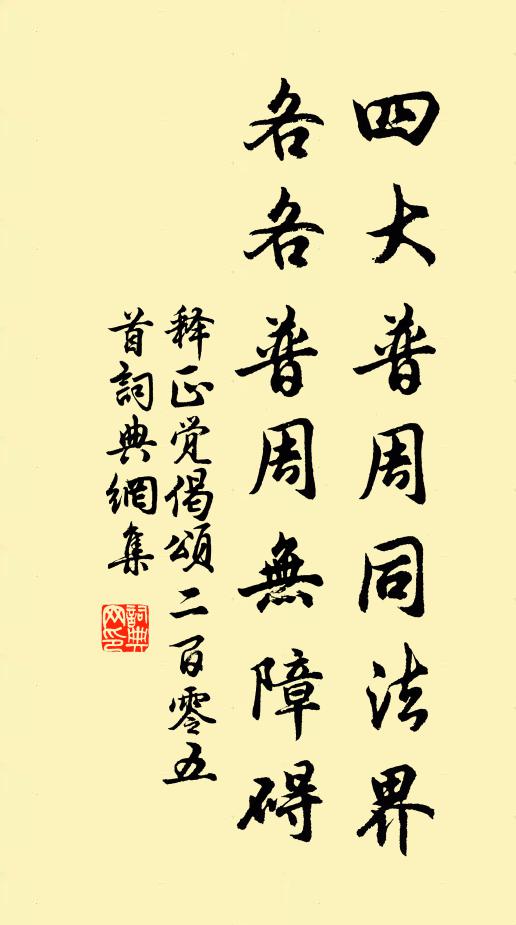 四大普周同法界
各各普周無障碍
释正觉偈頌二百零五
首詞典網集
詞典
网印